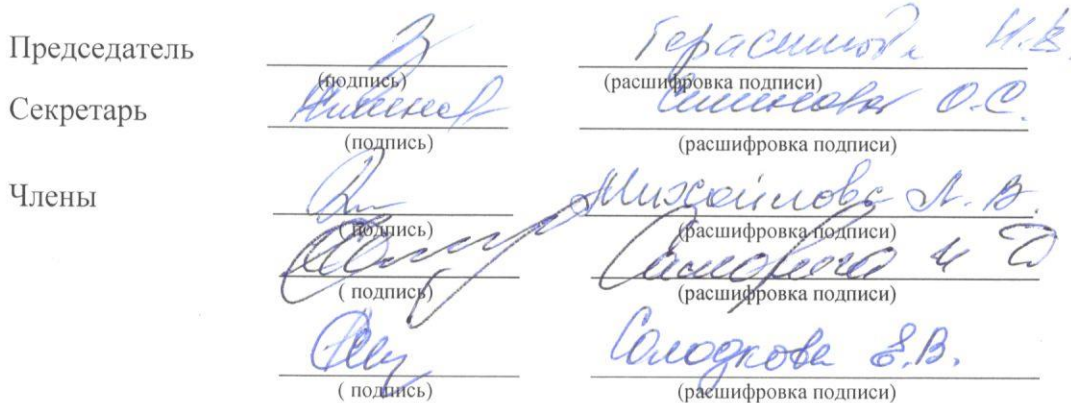 Председатель Герасимова Н.В.
(подпись) (расшифровка подписи)
Секретарь О.С.
(подпись) (расшифровка подписи)
Члены Михайлова Л.В.
(подпись) (расшифровка подписи)
( подпись) (расшифровка подписи)
Солодкова Е.В.
( подпись) (расшифровка подписи)